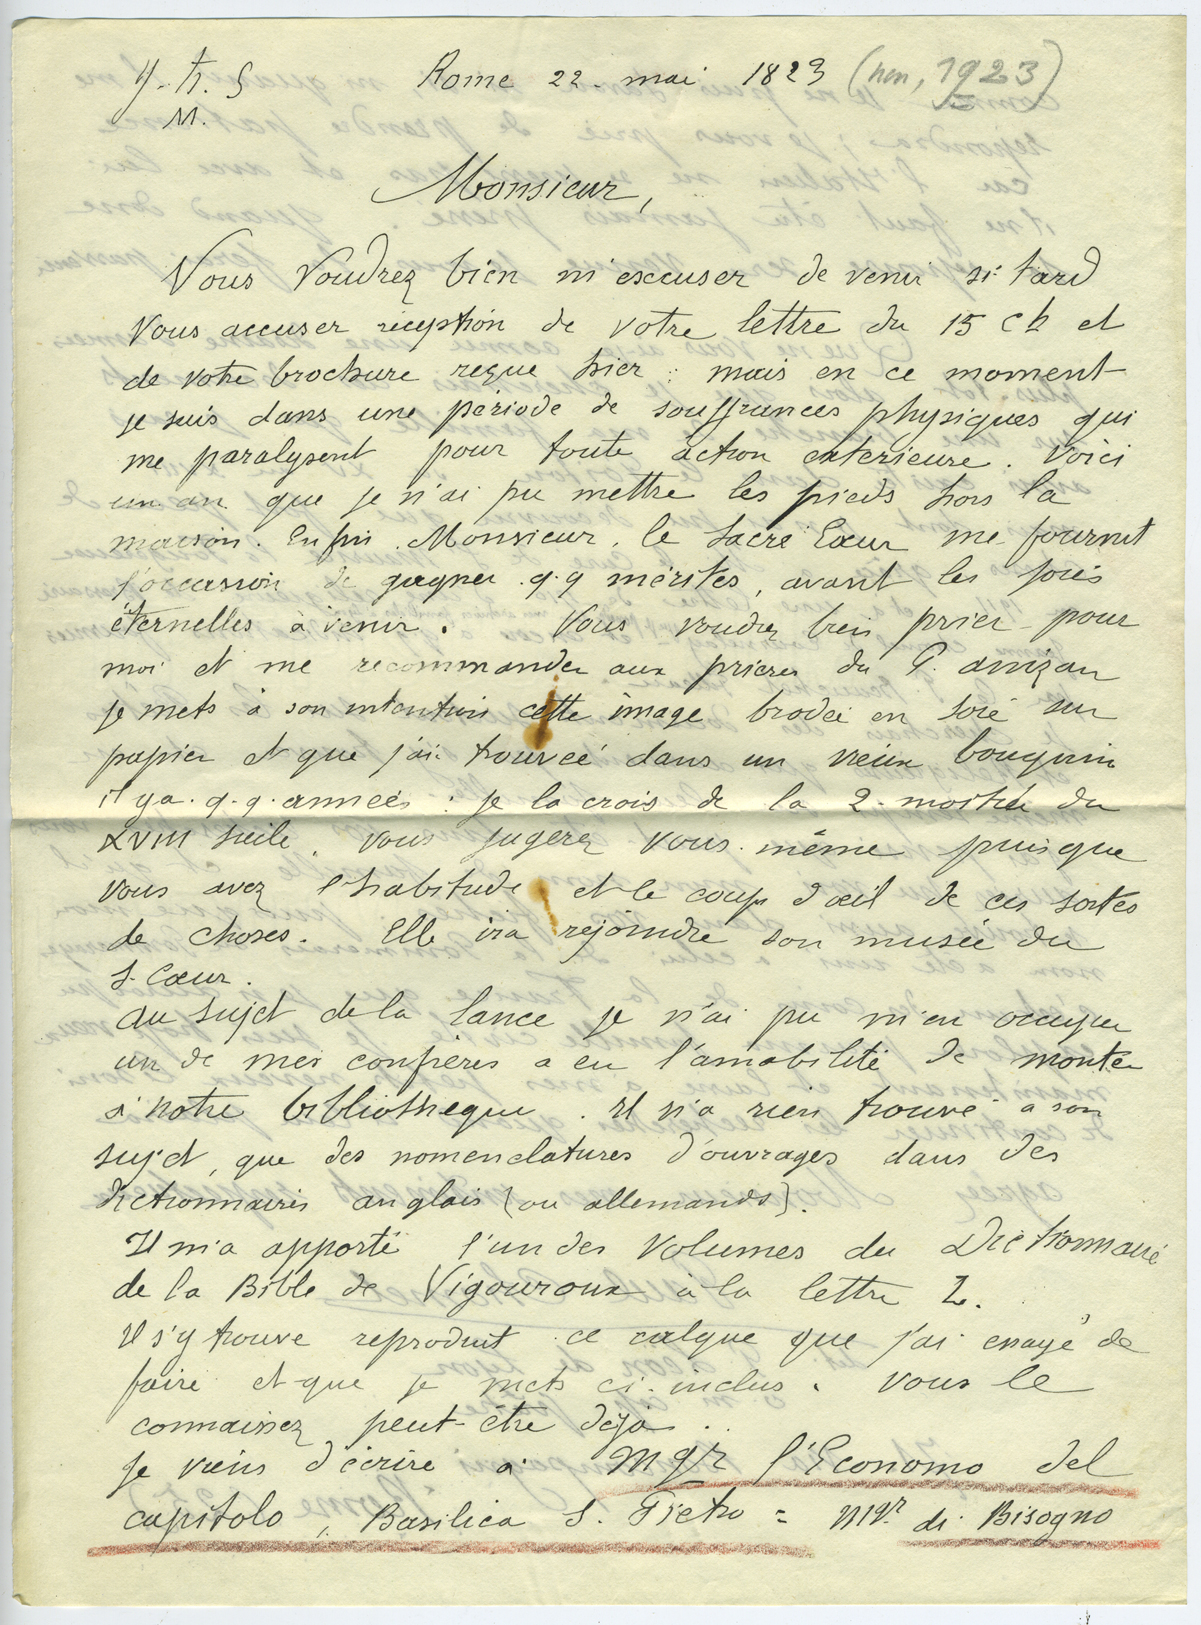 J. h. S Rome 22. mai 1823 (non, 1923)
M.
Monsieur,
Vous voudrez bien m'excuser de venir si tard
vous accuser réception de votre lettre du 15 ct et
de votre brochure reçue hier : mais en ce moment
je suis dans une période de souffrances physiques qui
me paralysent pour toute action exterieure. Voici
un an que je n'ai pu mettre les pieds hors la
maison. Enfin Monsieur, le Sacré Cœur me fournit
l'occasion de gagner q.q mérites, avant les joies
éternelles à venir. Vous voudrez bien prier pour
moi et me recommander aux prieres du P. anizan
je mets à son intention cette image brodée en soie sur
papier et que j'ai trouvée dans un vieux bouquin
il y a q.q. années : je la crois de la 2. moitié du
XVIII siecle. Vous jugerez vous même puisque
vous avez l'habitude et le coup d'œil de ces sortes
de choses. Elle ira rejoindre son musée du
S. Cœur.
au sujet de la lance je n'ai pu m'en occuper
un de mes confrères a eu l'amabilité de monter
à notre bibliotheque. Il n'a rien trouvé a son
sujet, que des nomenclatures d'ouvrages dans des
dictionnaires anglais (ou allemands).
Il m'a apporté l'un des volumes du Dictionnaire
de la Bible de Vigouroux à la lettre L.
Il s'y trouve reproduit ce calque que j'ai essayé de
faire et que je mets ci-inclus. Vous le
connaissez peut-être déjà.
je viens d'écrire à Mgr l'Economo del
capitolo, Basilica S. Pietro = Mgr di Bisogno